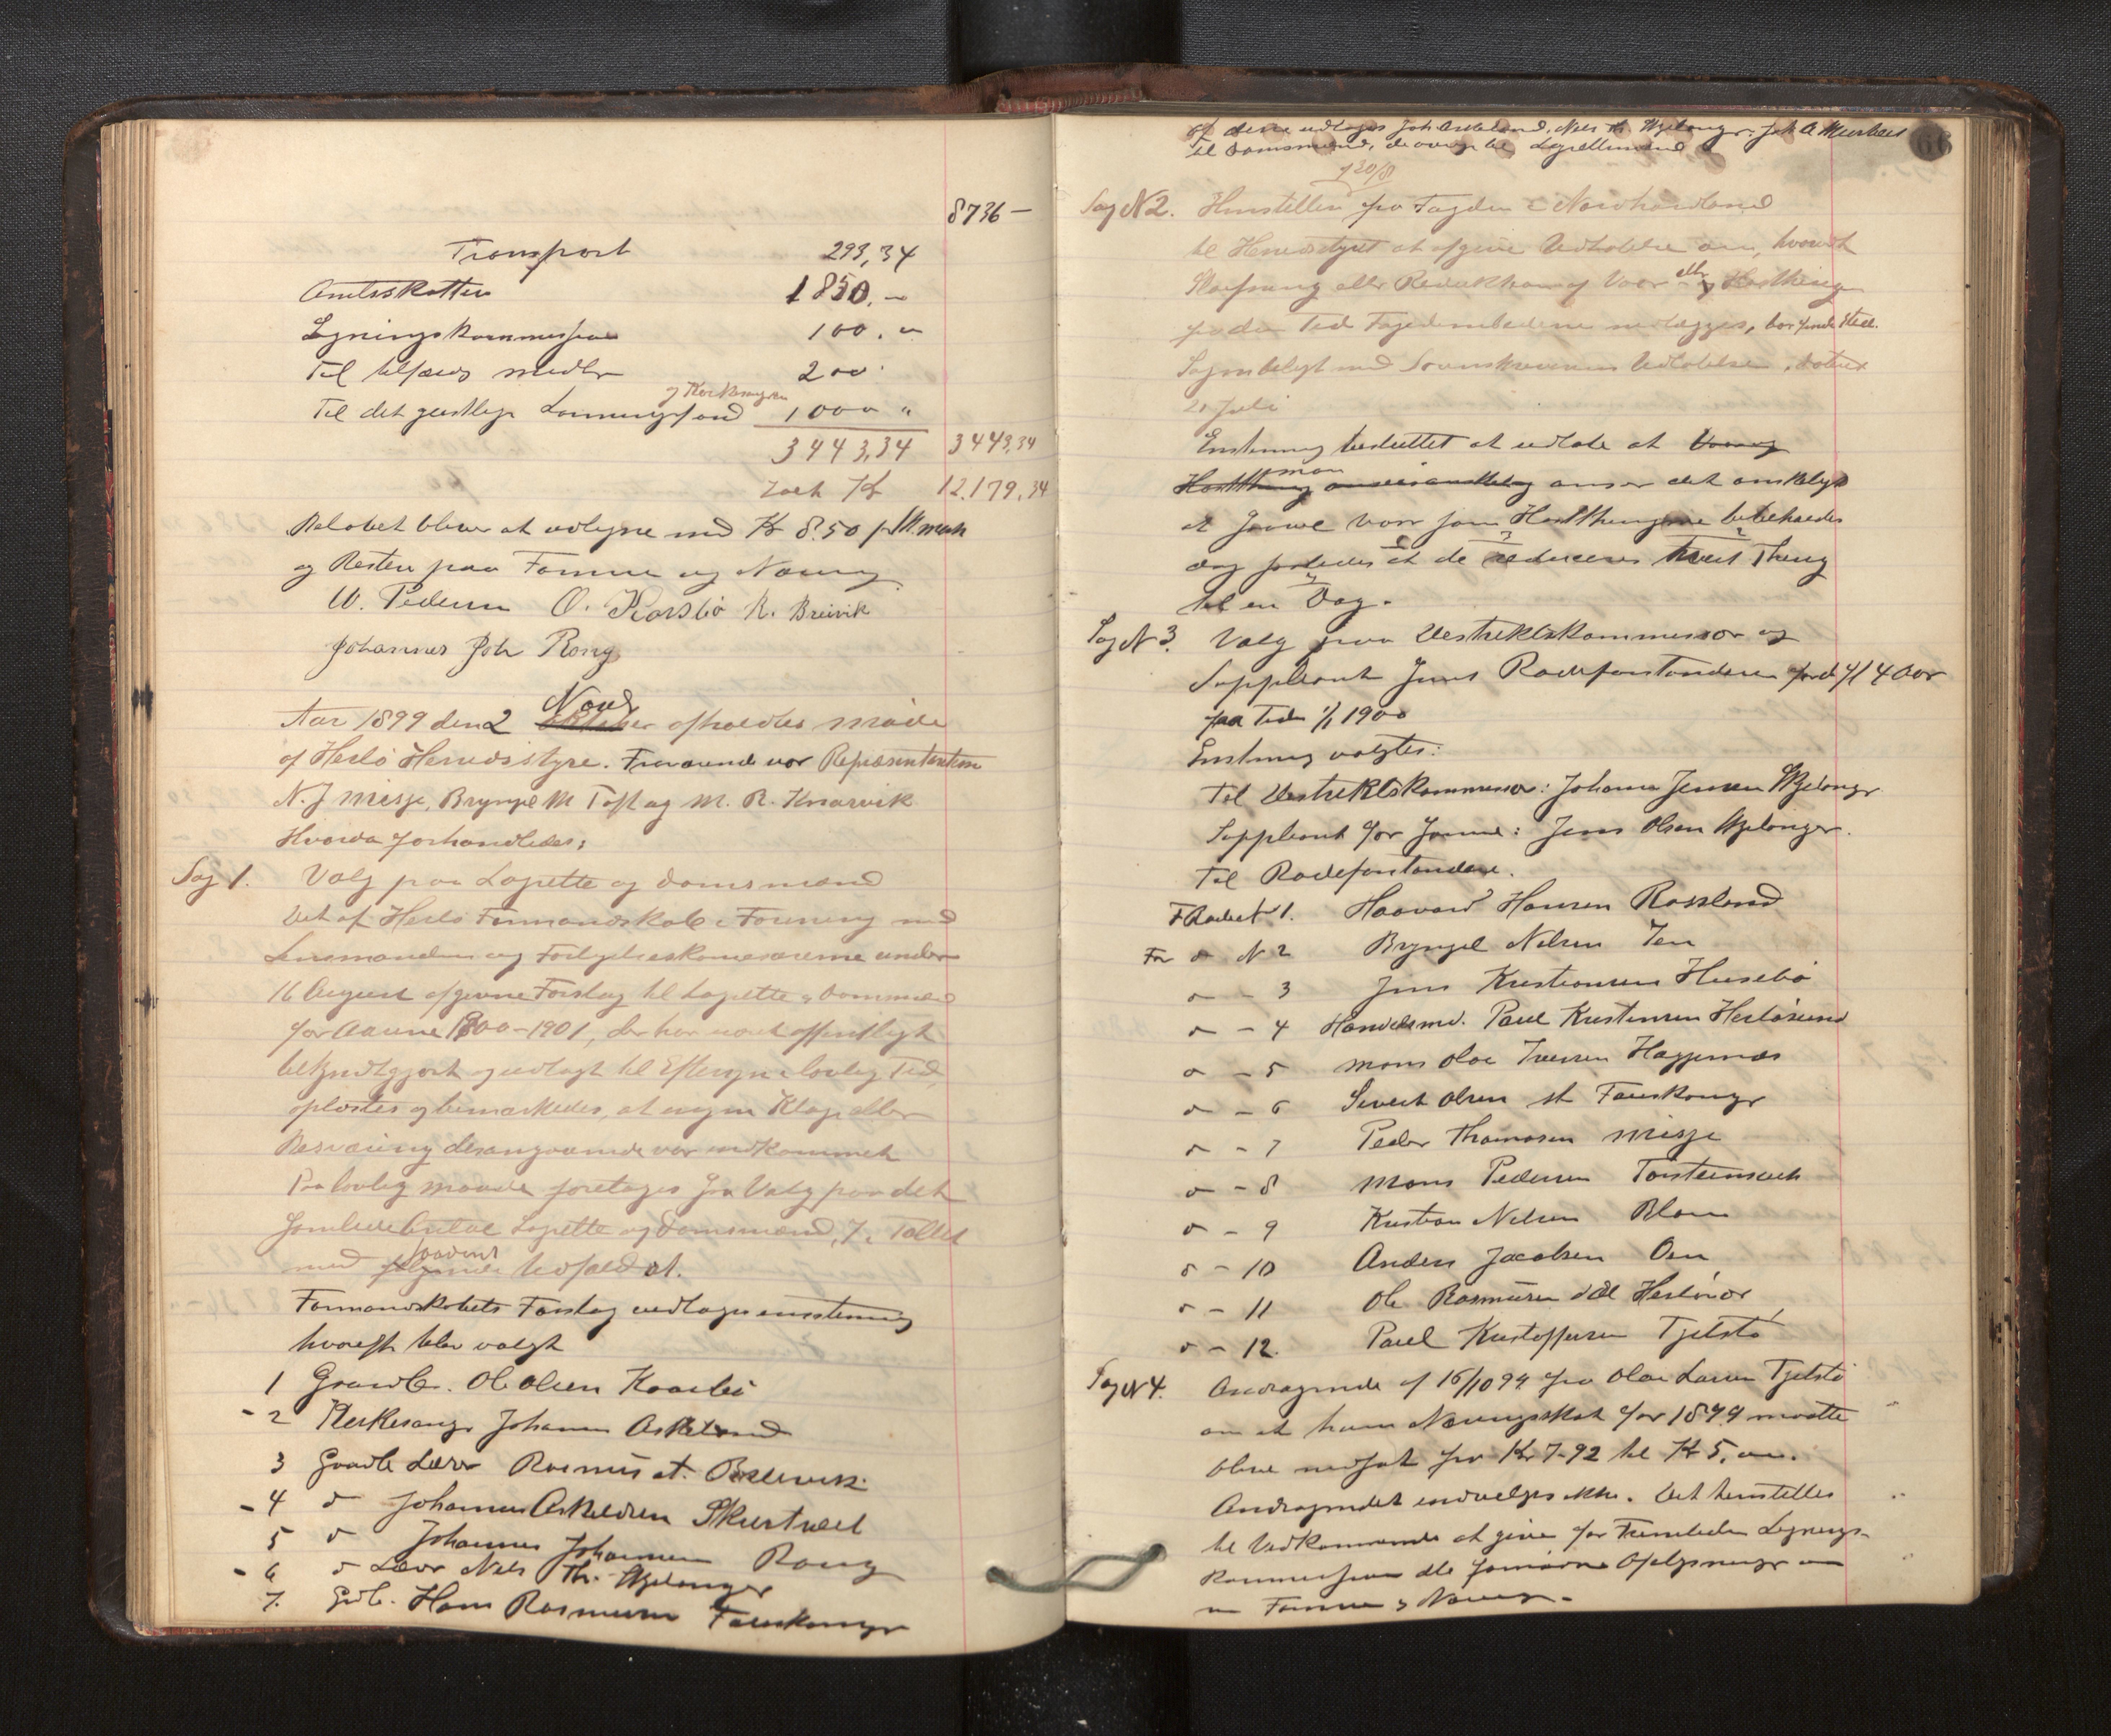 8736 —
Transport 293,34
Amtsskatten 1850. –
Ligningskommissionen 100. "
Til tilfældig midler 200 "
og Kirkesangeren
Til det geistlige Lønningsfond 1000 "
3443,34 3443,34
Kr 12.179,34
Beløbet bliver at udligne med Kr 8.50 pr Sk.mark
og Resten paa Formue og Næring
W. Pedersen O. Kaarsbø R. Breivik
Johannes Joh Rong
Novbr
Aar 1899 den 2 Oktober afholdtes møde
af Herlø Herredsstyre. Fraværende var Repræsentanterne
N. J Misje, Bryngel M Toft og M. R. Knarvik
Hvorda forhandledes:
Sag 1. Valg paa Lagrette og Domsmænd
Det af Herlø Formandskab i Forening med
Lensmanden og Forligelseskomisærerne under
16 August afgivne Forslag til Lagrette og Domsmænd
for Aarene 1900–1901, der har været offentligt
bekjendtgjort og udlagt til Eftersyn i lovlig Tid,
oplæstes og bemærkedes, at ingen Klage eller
Besværing desangaaende var indkommet
Paa lovlig maade foretages saa Valg paa det
samlede Antal Lagrette og Domsmænd, 7 i Tallet
saadant
med følgende Udfald at.
Formandskabets Forslag vedtages enstemmig
hvorefter blev valgt
1 Graadbr. Ole Olsen Kaarbø
- 2 Kirkesanger Johannes Askeland
3 Gaardb Lærer Rasmus A. Breivik
- 4 do Johannes Askeldsen Skurtveit
5 do Johannes Johannesen Rong
- 6 do Lærer Nils Th. Hjelanger
7. Grdb. Hans Rasmussen Fauskanger
66
af disse udtoges Joh Askeland, Nils Th. Hjelanger, Joh A
til Domsmænd, de øvrige til Lagrettemænd
Sag N 2. Henstillen fra Fogden i Nordhordland
til Herredsstyret at afgive Udtalelse om, hvorvidt
eller
Sløifning eller Reduktion af Vaar og Høstthing
før den Tid Fogedembederne nedlægges, bør finde Sted.
Sagen belagt med Sorenskriverens Udtalelse, dateret
20 Juli
Enstemmig besluttet at udtale at Vaar og
man
Høstthing anser det ønskeligt
at saavel Vaar som Høstthingene bibeholdes
dog saaledes at de reduceres hvert Thing
til en Dag.
Sag N 3. Valg paa Distriktskommissær og
Suppleant samt Rodeforstandere for 4 Aar
fra Tiden 1/1 1900
Enstemig valgtes:
Til Distriktskommissær: Johannes Jensen Hjelanger
Suppleant for samme: Jens Olsen Hjelanger.
Til Rodeforstandere.
F Roden N 1. Haavard Hansen Rossland
For do N 2 Bryngel Nilsen
do – 3 Jens Kristiansen Husebø
do – 4 Handelsmd. Paul Kristensen Herløsund
do – 5 Mons Olai Iversen Hagenæs
do – 6 Sivert Olsen st Fauskanger
do – 7 Peder Thomasen Misje
do – 8 Mons Pedersen Torsteinsvik
do – 9 Kristian Nilsen Blom
do – 10 Anders Jacobsen Oen
do – 11 Ole Rasmussen Herløvær
do – 12. Paul Kristoffersen Tjelstø
Sag N 4. Andragende af 16/10 99 fra Olai Larsen Tjelstø
om at hans Næringsskat for 1899 maatte
blive nedsat fra Kr 7-92 til Kr 5,00.
Andragendet indvilges ikke. Det henstilles
til Vedkommende at give for Fremtiden Lignings-
kommissionen alle fornødne Oplysninger om
Formue og Næring –